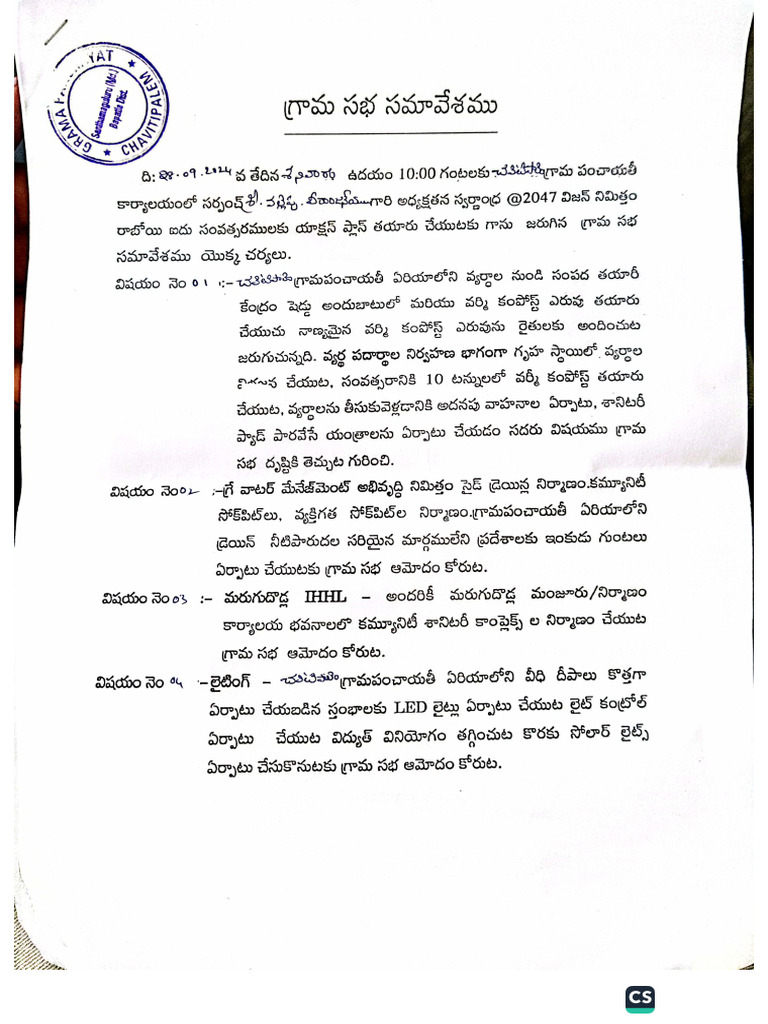 GRAMA PANCHAYAT ★ CHAVITIPALEM ★
Santhamaguluru (Md.)
Bapatla Dist.
గ్రామ సభ సమావేశము
ది: 28.09.2024 వ తేదిన శనివారం ఉదయం 10:00 గంటలకు చవిటిపాలెం గ్రామ పంచాయతీ
కార్యాలయంలో సర్పంచ్ శ్రీ. గారి అధ్యక్షతన స్వర్ణాంధ్ర @2047 విజన్ నిమిత్తం
రాబోయి ఐదు సంవత్సరములకు యాక్షన్ ప్లాన్ తయారు చేయుటకు గాను జరుగిన గ్రామ సభ
సమావేశము యొక్క చర్యలు.
విషయం నెం 01 :- చవిటిపాలెం గ్రామపంచాయతీ ఏరియాలోని వ్యర్ధాల నుండి సంపద తయారీ
కేంద్రం షెడ్డు అందుబాటులో మరియు వర్మి కంపోస్ట్ ఎరువు తయారు
చేయుచు నాణ్యమైన వర్మి కంపోస్ట్ ఎరువును రైతులకు అందించుట
జరుగుచున్నది. వ్యర్థ పదార్థాల నిర్వహణ భాగంగా గృహ స్థాయిలో వ్యర్ధాల
చేయుట, సంవత్సరానికి 10 టన్నులలో వర్మీ కంపోస్ట్ తయారు
చేయుట, వ్యర్ధాలను తీసుకువెళ్లడానికి అదనపు వాహనాల ఏర్పాటు, శానిటరీ
ప్యాడ్ పారవేసే యంత్రాలను ఏర్పాటు చేయడం సదరు విషయము గ్రామ
సభ దృష్టికి తెచ్చుట గురించి.
విషయం నెం02 :-గ్రే వాటర్ మేనేజ్‌మెంట్ అభివృద్ధి నిమిత్తం సైడ్ డ్రెయిన్ల నిర్మాణం.కమ్యూనిటీ
సోక్‌పిట్‌లు, వ్యక్తిగత సోక్‌పిట్‌ల నిర్మాణం.గ్రామపంచాయతీ ఏరియాలోని
డ్రెయిన్ నీటిపారుదల సరియైన మార్గములేని ప్రదేశాలకు ఇంకుడు గుంటలు
ఏర్పాటు చేయుటకు గ్రామ సభ ఆమోదం కోరుట.
విషయం నెం 03 :- మరుగుదొడ్ల IHHL – అందరికీ మరుగుదొడ్ల మంజూరు/నిర్మాణం
కార్యాలయ భవనాలలో కమ్యూనిటీ శానిటరీ కాంప్లెక్స్ ల నిర్మాణం చేయుట
గ్రామ సభ ఆమోదం కోరుట.
విషయం నెం 04 :-లైటింగ్ – చవిటిపాలెం గ్రామపంచాయతీ ఏరియాలోని వీధి దీపాలు కొత్తగా
ఏర్పాటు చేయబడిన స్తంభాలకు LED లైట్లు ఏర్పాటు చేయుట లైట్ కంట్రోల్
ఏర్పాటు చేయుట విద్యుత్ వినియోగం తగ్గించుట కొరకు సోలార్ లైట్స్
ఏర్పాటు చేసుకొనుటకు గ్రామ సభ ఆమోదం కోరుట.
CS